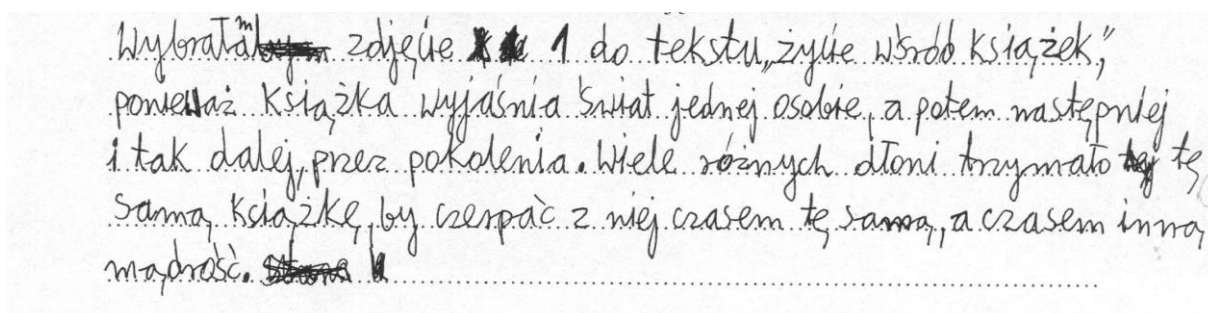 Wybrałam zdjęcie 1 do tekstu „życie wśród książek,”
ponieważ książka wyjaśnia świat jednej osobie, a potem następnej
i tak dalej, przez pokolenia. Wiele różnych dłoni trzymało tę
samą książkę, by czerpać z niej czasem tę samą, a czasem inną
mądrość.